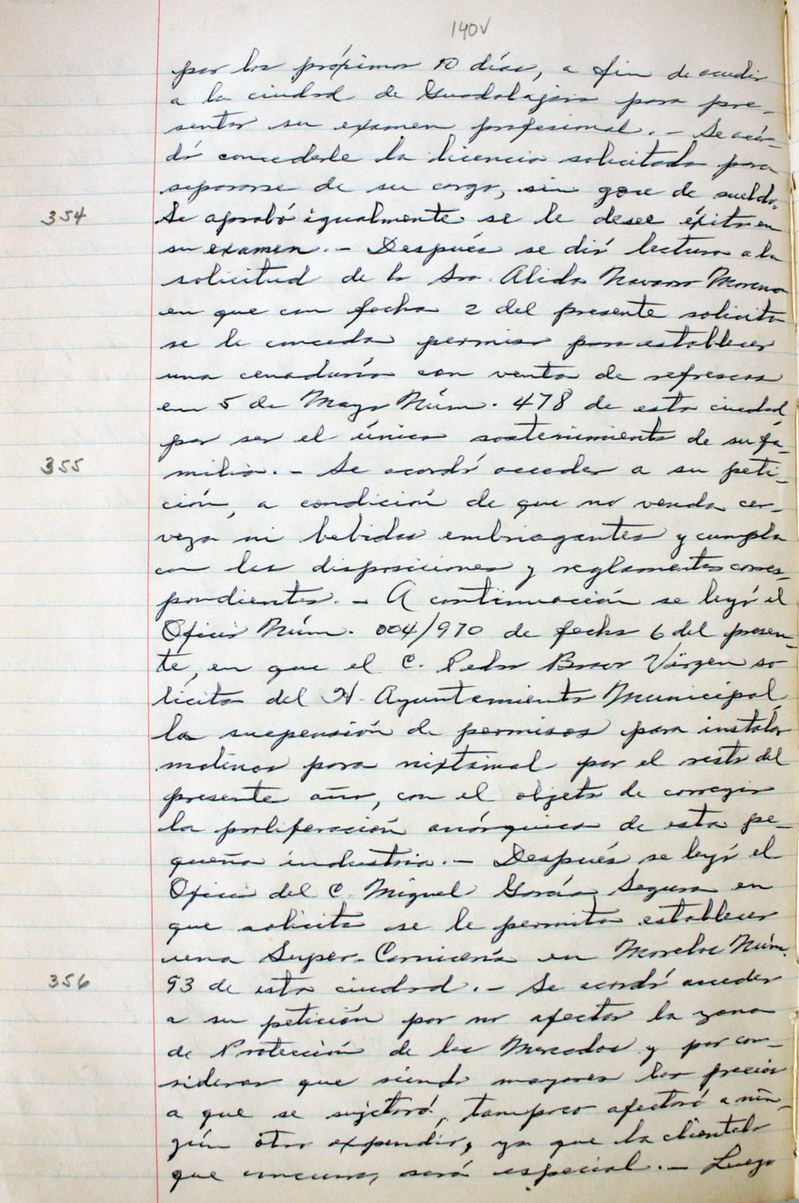 140V
por los próximos 10 días, a fin de acudir
a la ciudad de Guadalajara para pre-
sentar su examen profesional.- Se acor-
dó concederle la licencia solicitada para
separarse de su cargo, sin goce de sueldo.
354
Se aprobó igualmente se le desee éxito en
su examen.- Después se dió lectura a la
solicitud de la Sra. Alida Navarro Moreno
en que con fecha 2 del presente solicita
se le conceda permiso para establecer
una cenaduría con venta de refrescos
en 5 de Mayo Núm. 478 de esta ciudad
por ser el único sostenimiento de su fa-
355
milia.- Se acordó acceder a su peti-
ción, a condición de que no venda cer-
veza ni bebidas embriagantes y cumpla
con las disposiciones y reglamentos corres-
pondientes.- A continuación se leyó el
Oficio Núm. 004/970 de fecha 6 del presen-
te, en que el C. Pedro Virgen so
licita del H. Ayuntamiento Municipal,
la suspensión de permisos para instalar
molinos para nixtamal por el resto del
presente año, con el objeto de corregir
la proliferación anárquica de esta pe-
queña industria.- Después se leyó el
Oficio del C. Miguel García Segura en
que solicita se le permita establecer
una Super-Carnicería en Morelos Núm.
356
93 de esta ciudad.- Se acordó acceder
a su petición por no afectar la zona
de Protección de los Mercados y por con-
siderar que siendo mayores los precios
a que se sujetará, tampoco afectará a nin-
gún otro expendio, ya que la clientela
que será especial.- Luego